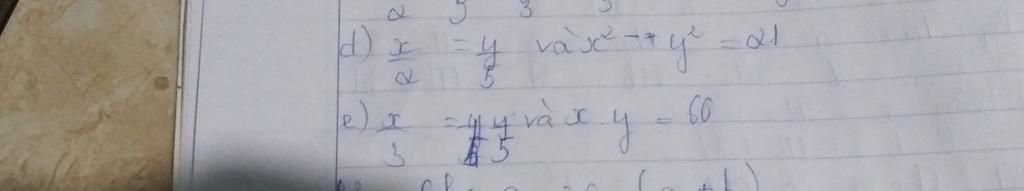 2 5 3 5
d) x/2 = y/5 và x² - y² = 21
e) x/3 = y/5 và x . y = 60